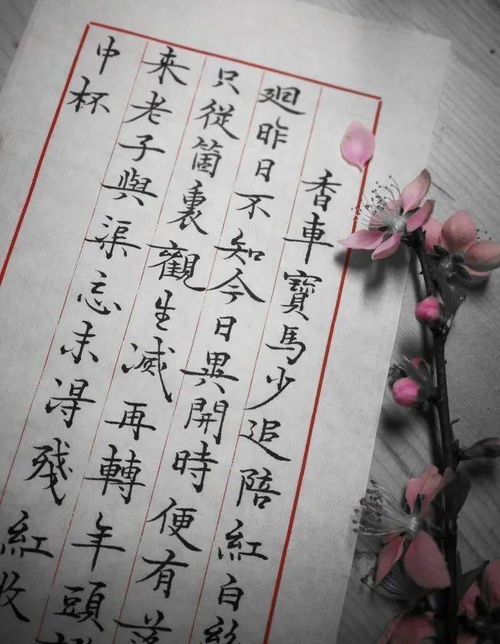 香車寶馬少追陪紅白
廻昨日不知今日異開時便有
只從箇裏觀生滅再轉年頭
來老子與渠忘未得殘紅收
中杯